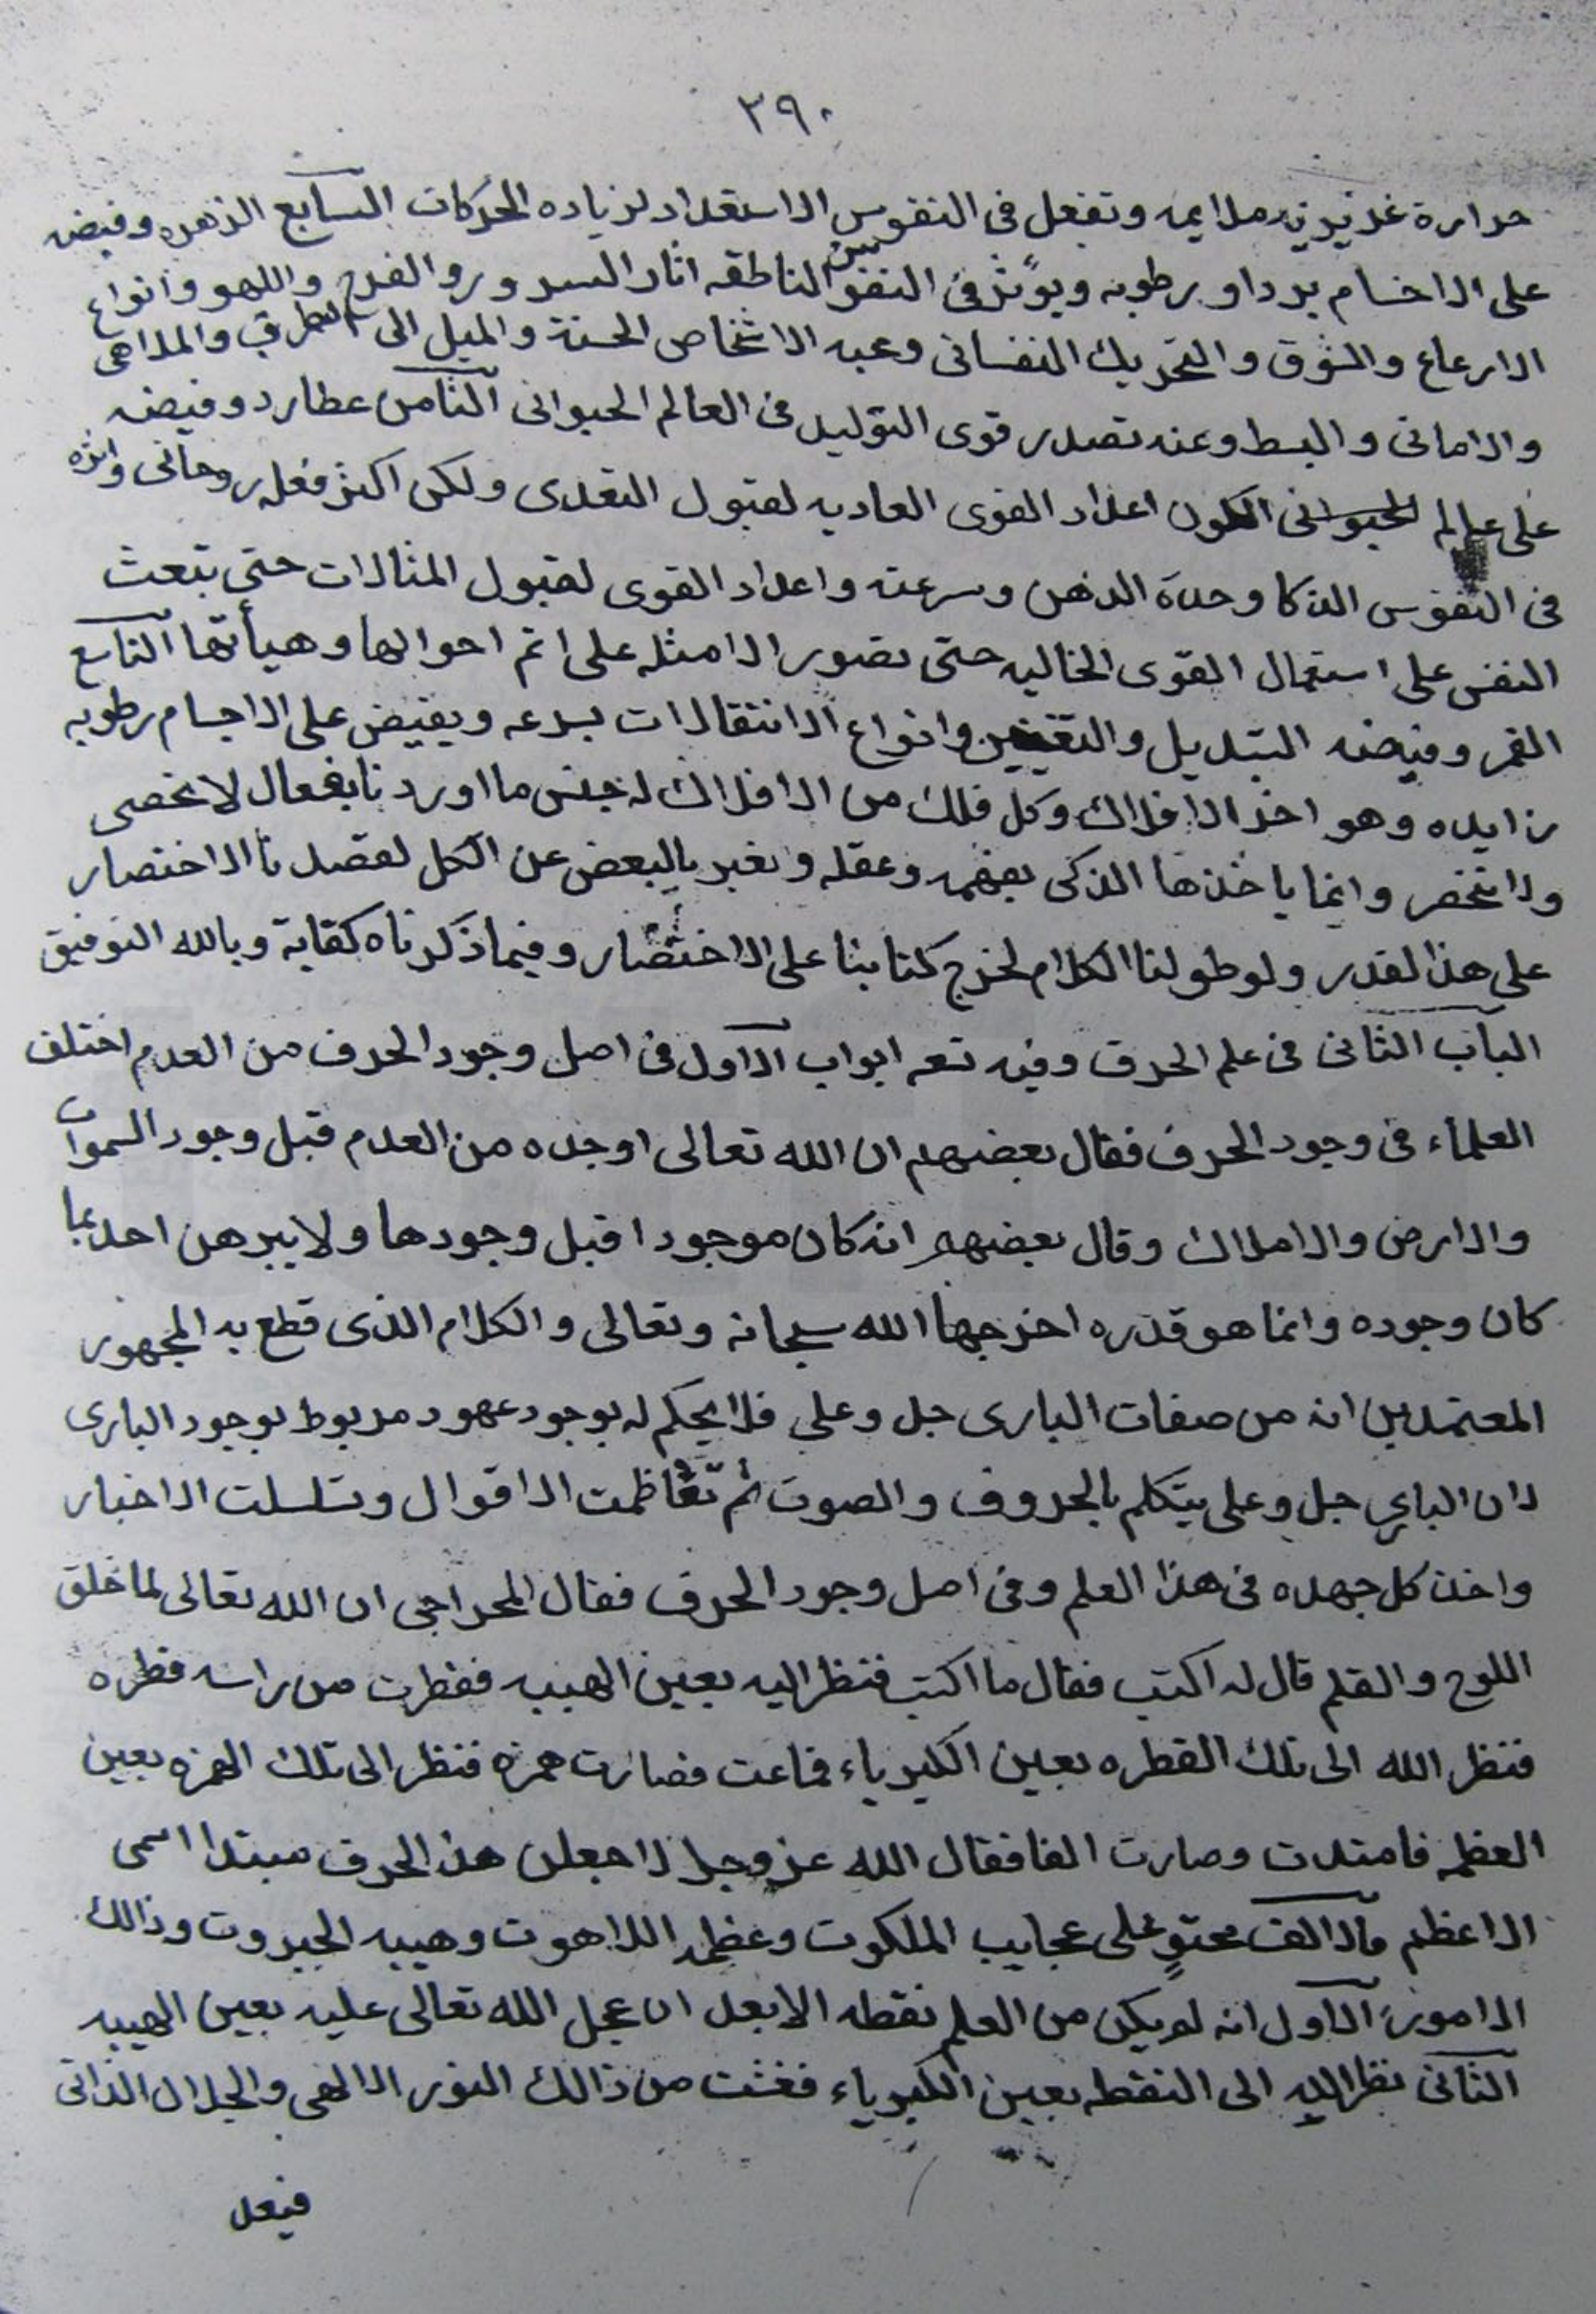 ٣٩٠
حرارة غريزيه ملايمه وتفعل فى النفوس الاستعداد لزياده الحركات السابع الزهره وفيضه
على الاجسام بردا ورطوبه ويؤثر فى النفوس الناطقه اثار السرور والفرح واللهو وانواع
الارعاع والشوق والتحريك النفسانى وعبه الاشخاص الحسنة والميل الى الطرق والملاهى
والامانى والبسط وعنه تصدر قوى التوليد فى العالم الحيوانى الثامن عطارد وفيضه
على عالم الكون اعداد القوى العاديه لقبول التغدى ولكن اكثر فعله روحانى واثره
فى النفوس الذكا وحدة الذهن وسرعته واعداد القوى لقبول المثالات حتى تبعث
النفس على استعمال القوى الخاليه حتى تصور الامثله على اتم احوالها وهيأتها التاسع
القمر وفيضه التبديل والتغيير وانواع الانتقالات بسرعه ويفيض على الاجسام رطوبه
زايده وهو اخر الافلاك وكل فلك من الافلاك له جنس ما اوردنا بفعال لا تحصى
ولا تنحصر وانما ياخذها الذكى بفهمه وعقله ونعبر بالبعض عن الكل لقصدنا الاختصار
على هذا القدر ولو طولنا الكلام لخرج كتابنا على الاختصار وفيما ذكرناه كفاية وبالله التوفيق
الباب الثانى فى علم الحرف وفيه تسعه ابواب الاول فى اصل وجود الحرف من العدم اختلف
العلماء فى وجود الحرف فقال بعضهم ان الله تعالى اوجده من العدم قبل وجود السموات
والارض والاملاك وقال بعضهم انه كان موجودا قبل وجودها ولا يبرهن احد بما
كان وجوده وانما هو قدره اخرجها الله سبحانه وتعالى والكلام الذى قطع به المجهور
المعتمدين انه من صفات البارى جل وعلى فلا يحكم له بوجود عهود مربوط بوجود البارى
لان البارى جل وعلى يتكلم بالحروف والصوت ثم تعاظمت الاقوال وتسلسلت الاخبار
واخذ كل جهده فى هذا العلم وفى اصل وجود الحرف فقال المحراجى ان الله تعالى لما خلق
اللوح والقلم قال له اكتب فقال ما اكتب فنظر اليه بعين الهيبه فقطرت من راسه قطره
فنظر الله الى تلك القطره بعين الكبرياء فماعت فصارت همزه فنظر الى تلك الهمزه بعين
العظمه فامتدت وصارت الفا فقال الله عز وجل لاجعلن هذا الحرف مبتدا اسمى
الاعظم فالالف محتوٍ على عجايب الملكوت وعظمه اللاهوت وهيبه الجبروت وذالك
لامور الاول انه لم يكن من العلم نقطه الا بعد ان عجل الله تعالى عليه بعين الهيبه
الثانى نظر اليه الى النقطه بعين الكبرياء فغشت من ذالك النور الالهى والجلال الذاتى
فيعل